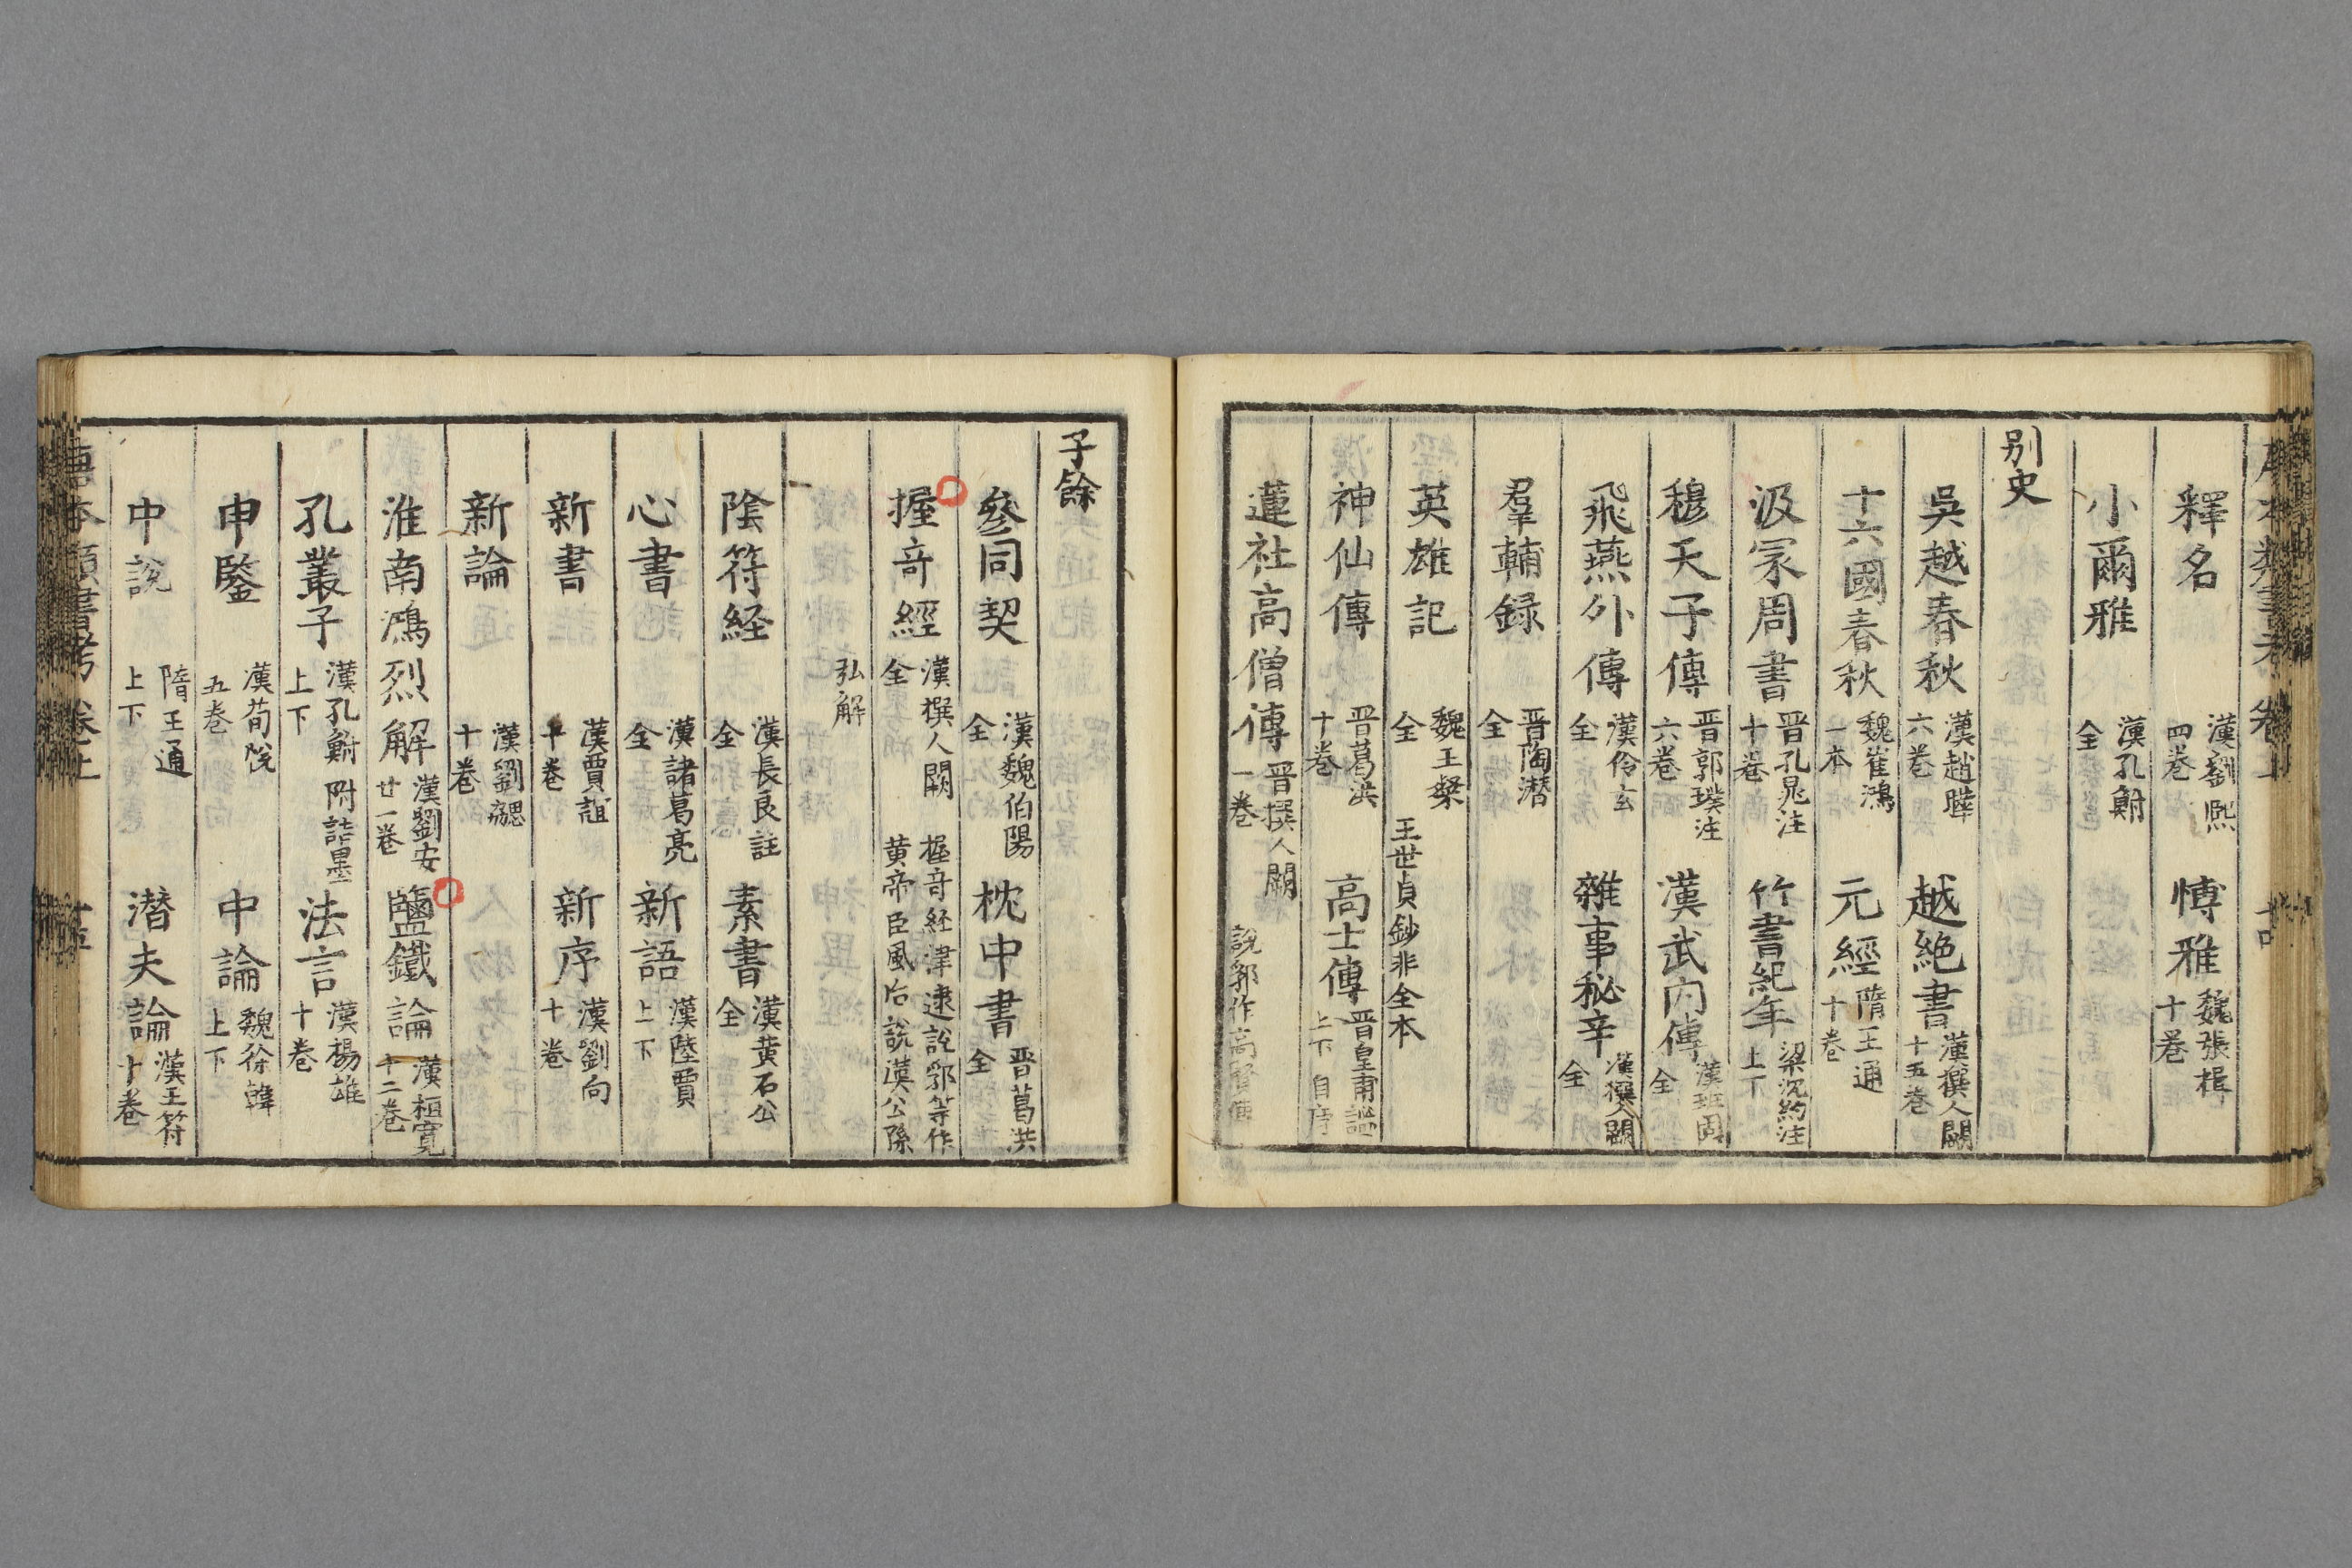 釋名 漢劉熙 四巻 愽雅 魏張楫 十巻
小爾雅 漢孔鮒 全
别史
吳越春秋 漢趙曄 六巻 越絶書 漢撰人闕 十五巻
十六國春秋 魏崔鴻 一本 元經 隋王通 十巻
汲冢周書 晋孔晁注 十巻 竹書紀年 梁沈約注 上下
穆天子傳 晋郭璞注 六巻 漢武内傳 漢班固 全
飛燕外傳 漢伶玄 全 雜事秘辛 漢撰人闕 全
羣輔録 晋陶潜 全
英雄記 魏王粲 全 王世貞鈔非全本
神仙傳 晋葛洪 十巻 高士傳 晋皇甫謐 上下 自序
蓮社高僧傳 晋撰人闕 一巻 說郛作高賢傳
子餘
參同契 漢魏伯陽 全 枕中書 晋葛洪 全
握奇經 漢撰人闕 全 握奇経津逮說郛等作黄帝臣風后說漢公孫
弘解
陰符経 漢長良註 全 素書 漢黄石公 全
心書 漢諸葛亮 全 新語 漢陸賈 上下
新書 漢賈誼 十巻 新序 漢劉向 十巻
新論 漢劉勰 十巻
淮南鴻烈解 漢劉安 廿一巻 鹽鐵論 漢桓寛 十二巻
孔叢子 漢孔鮒 上下 附詰墨 法言 漢楊雄 十巻
申鑒 漢荀悅 五巻 中論 魏徐幹 上下
中說 隋王通 上下 潜夫論 漢王符 十巻
唐本類書考 巻上